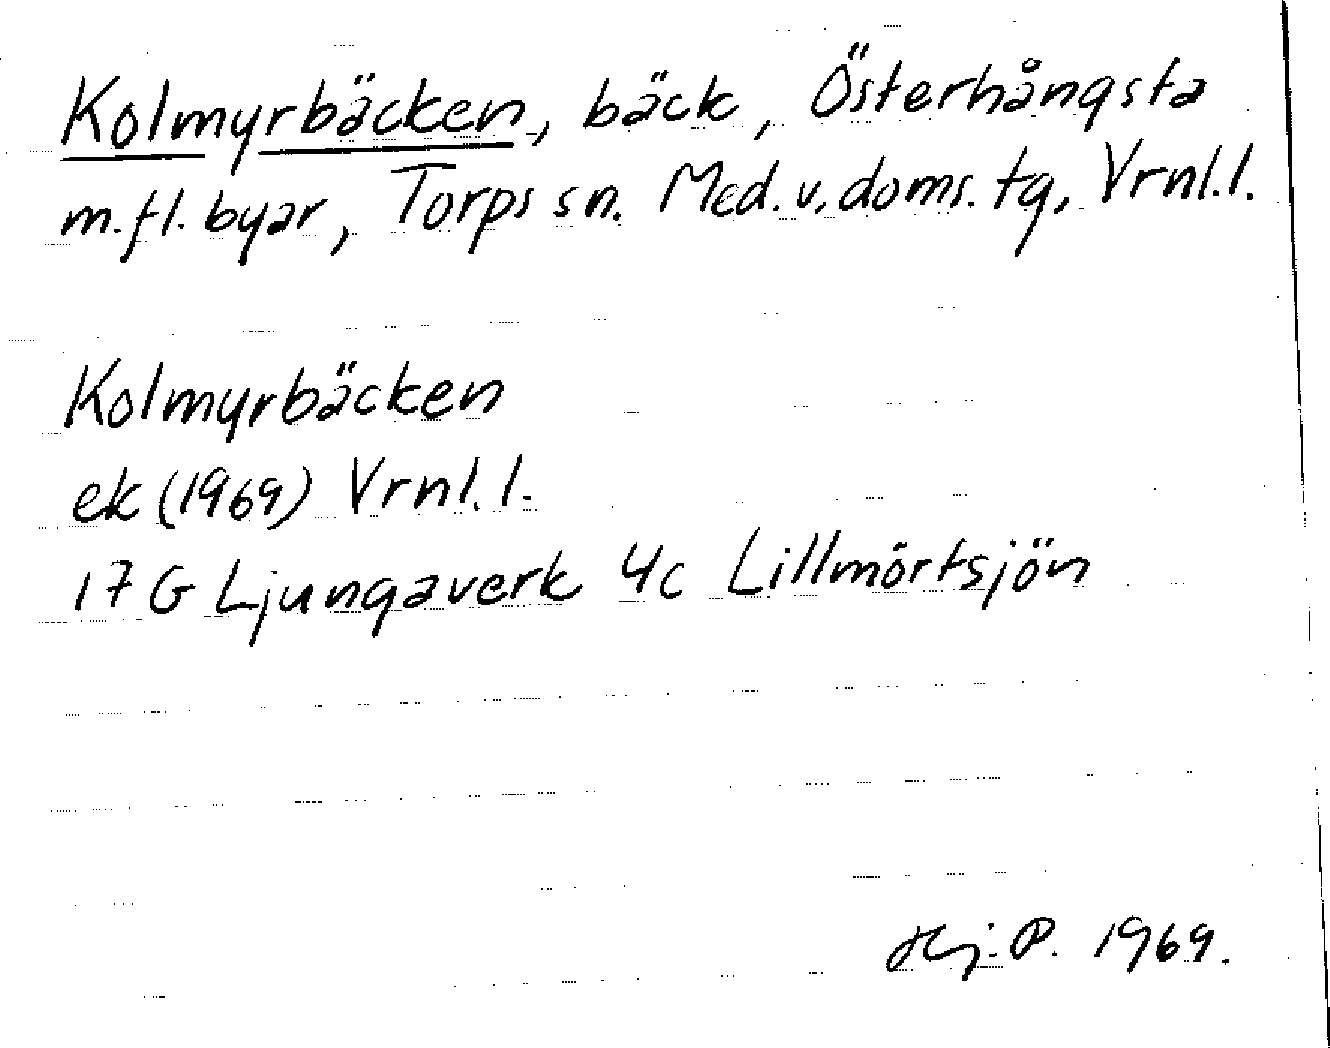 Kolmyrbäcken, bäck, Österhångsta
m.fl. byar, Torps sn. Med. v. doms. tg, Vrnl. l.
Kolmyrbäcken
ek (1969) Vrnl. l.
17 G Ljungaverk 4c Lillmörtsjön
Hj. P. 1969.